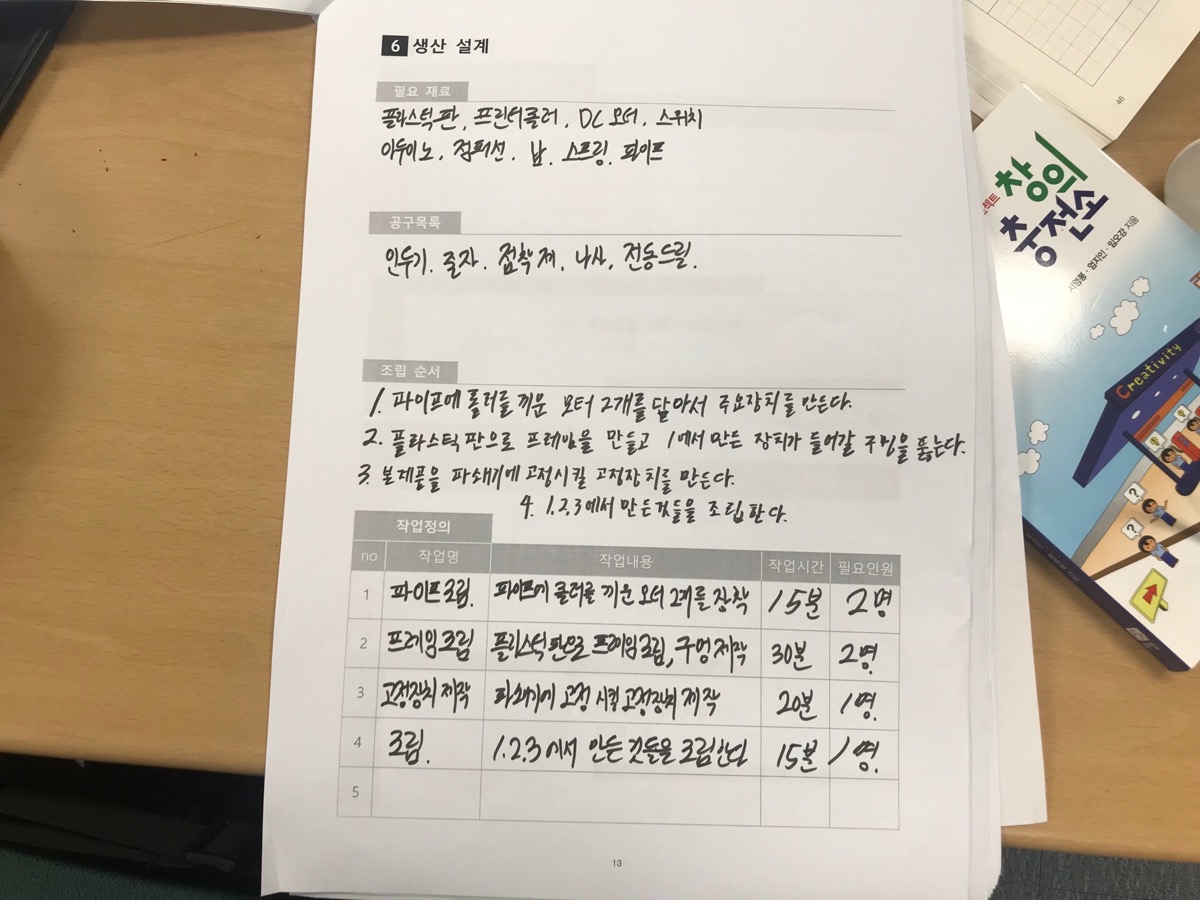 6 생산 설계
필요 재료
플라스틱판, 프린터롤러, DC 모터, 스위치
아두이노, 점퍼선, 납, 스프링, 파이프
공구목록
인두기, 줄자, 접착제, 나사, 전동드릴.
조립 순서
1. 파이프에 롤러를 끼운 모터 2개를 달아서 주요장치를 만든다.
2. 플라스틱 판으로 프레임을 만들고 1에서 만든 장치가 들어갈 구멍을 뚫는다.
3. 본제품을 파쇄기에 고정시킬 고정장치를 만든다.
4. 1.2.3에서 만든것들을 조립한다.
작업정의
no 작업명 작업내용 작업시간 필요인원
1 파이프조립. 파이프에 롤러를 끼운 모터 2개를 장착 15분 2명
2 프레임조립 플라스틱판으로 프레임조립, 구멍제작 30분 2명.
3 고정장치 제작 파쇄기에 고정 시킬 고정장치 제작 20분 1명.
4 조립. 1.2.3에서 만든 것들을 조립한다 15분 1명.
5
13
46
창의
충전소
서영봉·엄지민·임오강 지음
Creativity
?
?